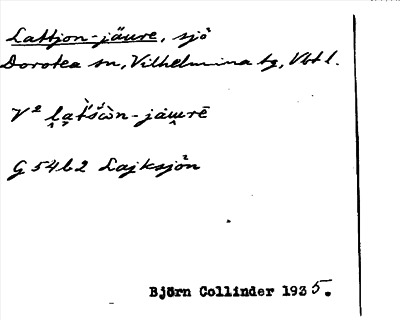 Lattjon-jäure, sjö
Dorotea sn, Vilhelmina tg, Vbtl.
V² l̯a̯tšòn-jäu̯rē
G 54b2 Lajksjön
Björn Collinder 1935.